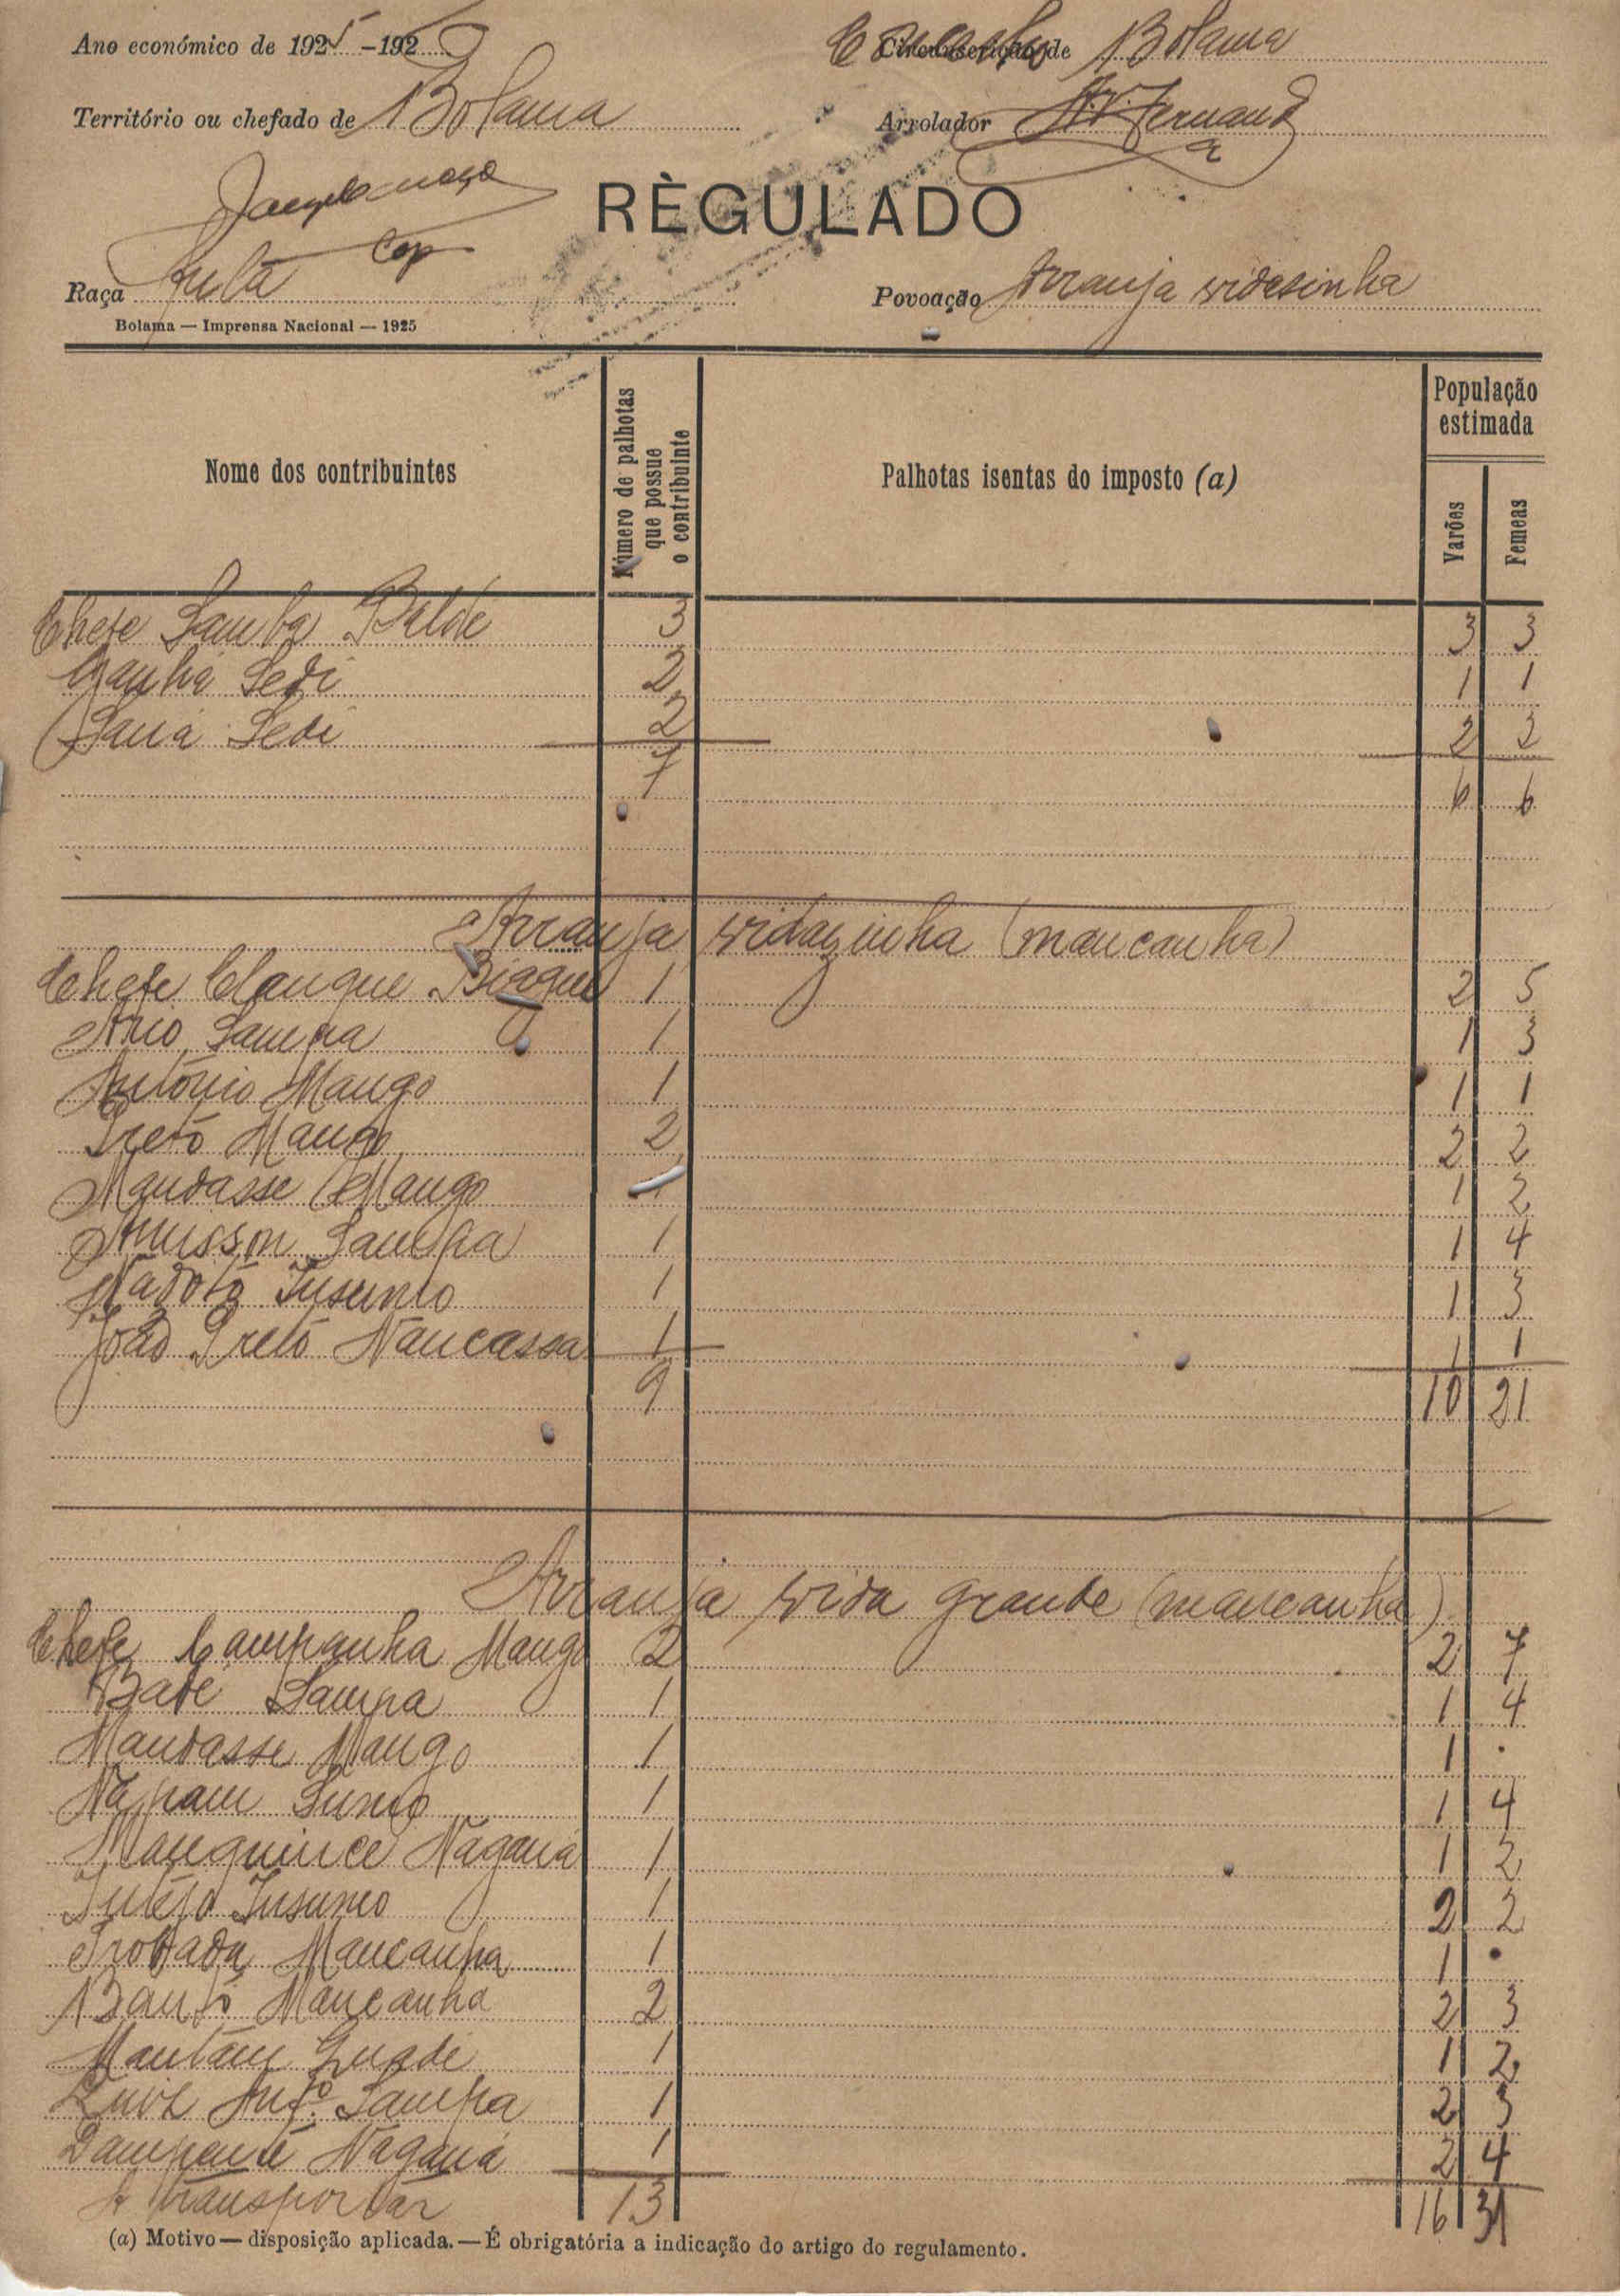 Ano económico de 1925 – 192
Concelho Circunscrição de Bolama
Território ou chefado de Bolama
Arrolador Fernand
RÈGULADO
Raça Fulá
Povoação Arranja vidasinha
Bolama — Imprensa Nacional — 1925
Nome dos contribuintes
Número de palhotas que possue o contribuinte
Palhotas isentas do imposto (a)
População estimada
Varões
Femeas
Chefe Samba Baldé 3 3 3
Sedi 2 1 1
Sedi 2 2 2
7 6 6
Arranja vidazinha (mancanha)
Chefe Clanque Biague 1 2 5
Sampa 1 1 3
António Mango 1 1 1
Preto Mango 2 2 2
Mandasse Mango 1 1 2
Sampa 1 1 4
1 1 3
João Preto Nancassa 1 1 1
9 10 21
Arranja vida grande (mancanha)
Chefe Campanha Mango 2 2 7
Sampa 1 1 4
Mandasse Mango 1 1 .
1 1 4
Nagana 1 1 2
1 2 2
Mancanha 1 1 .
Mancanha 2 2 3
1 1 2
Luiz Antº. Sampa 1 2 3
Nagana 1 2 4
A transportar 13 16 31
(a) Motivo — disposição aplicada. — É obrigatória a indicação do artigo do regulamento.